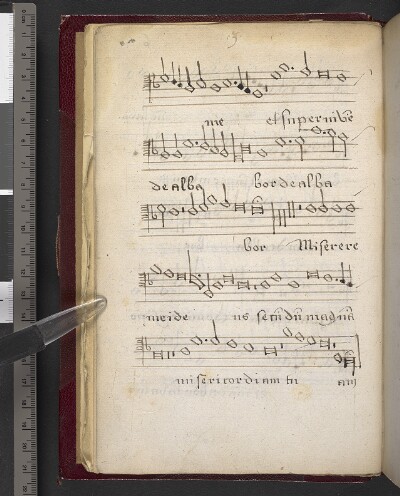 me et super nivē
dealba bor dealba
bor Miserere
mei de us secūdū magnā
misericordiam tu am